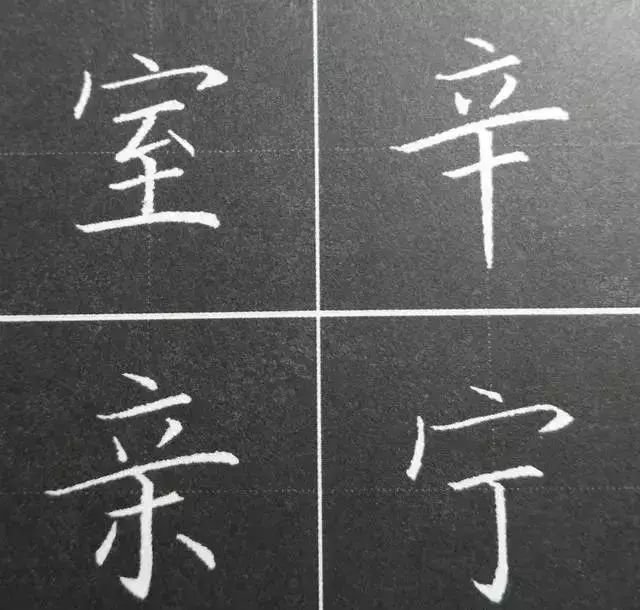 室辛
亲宁